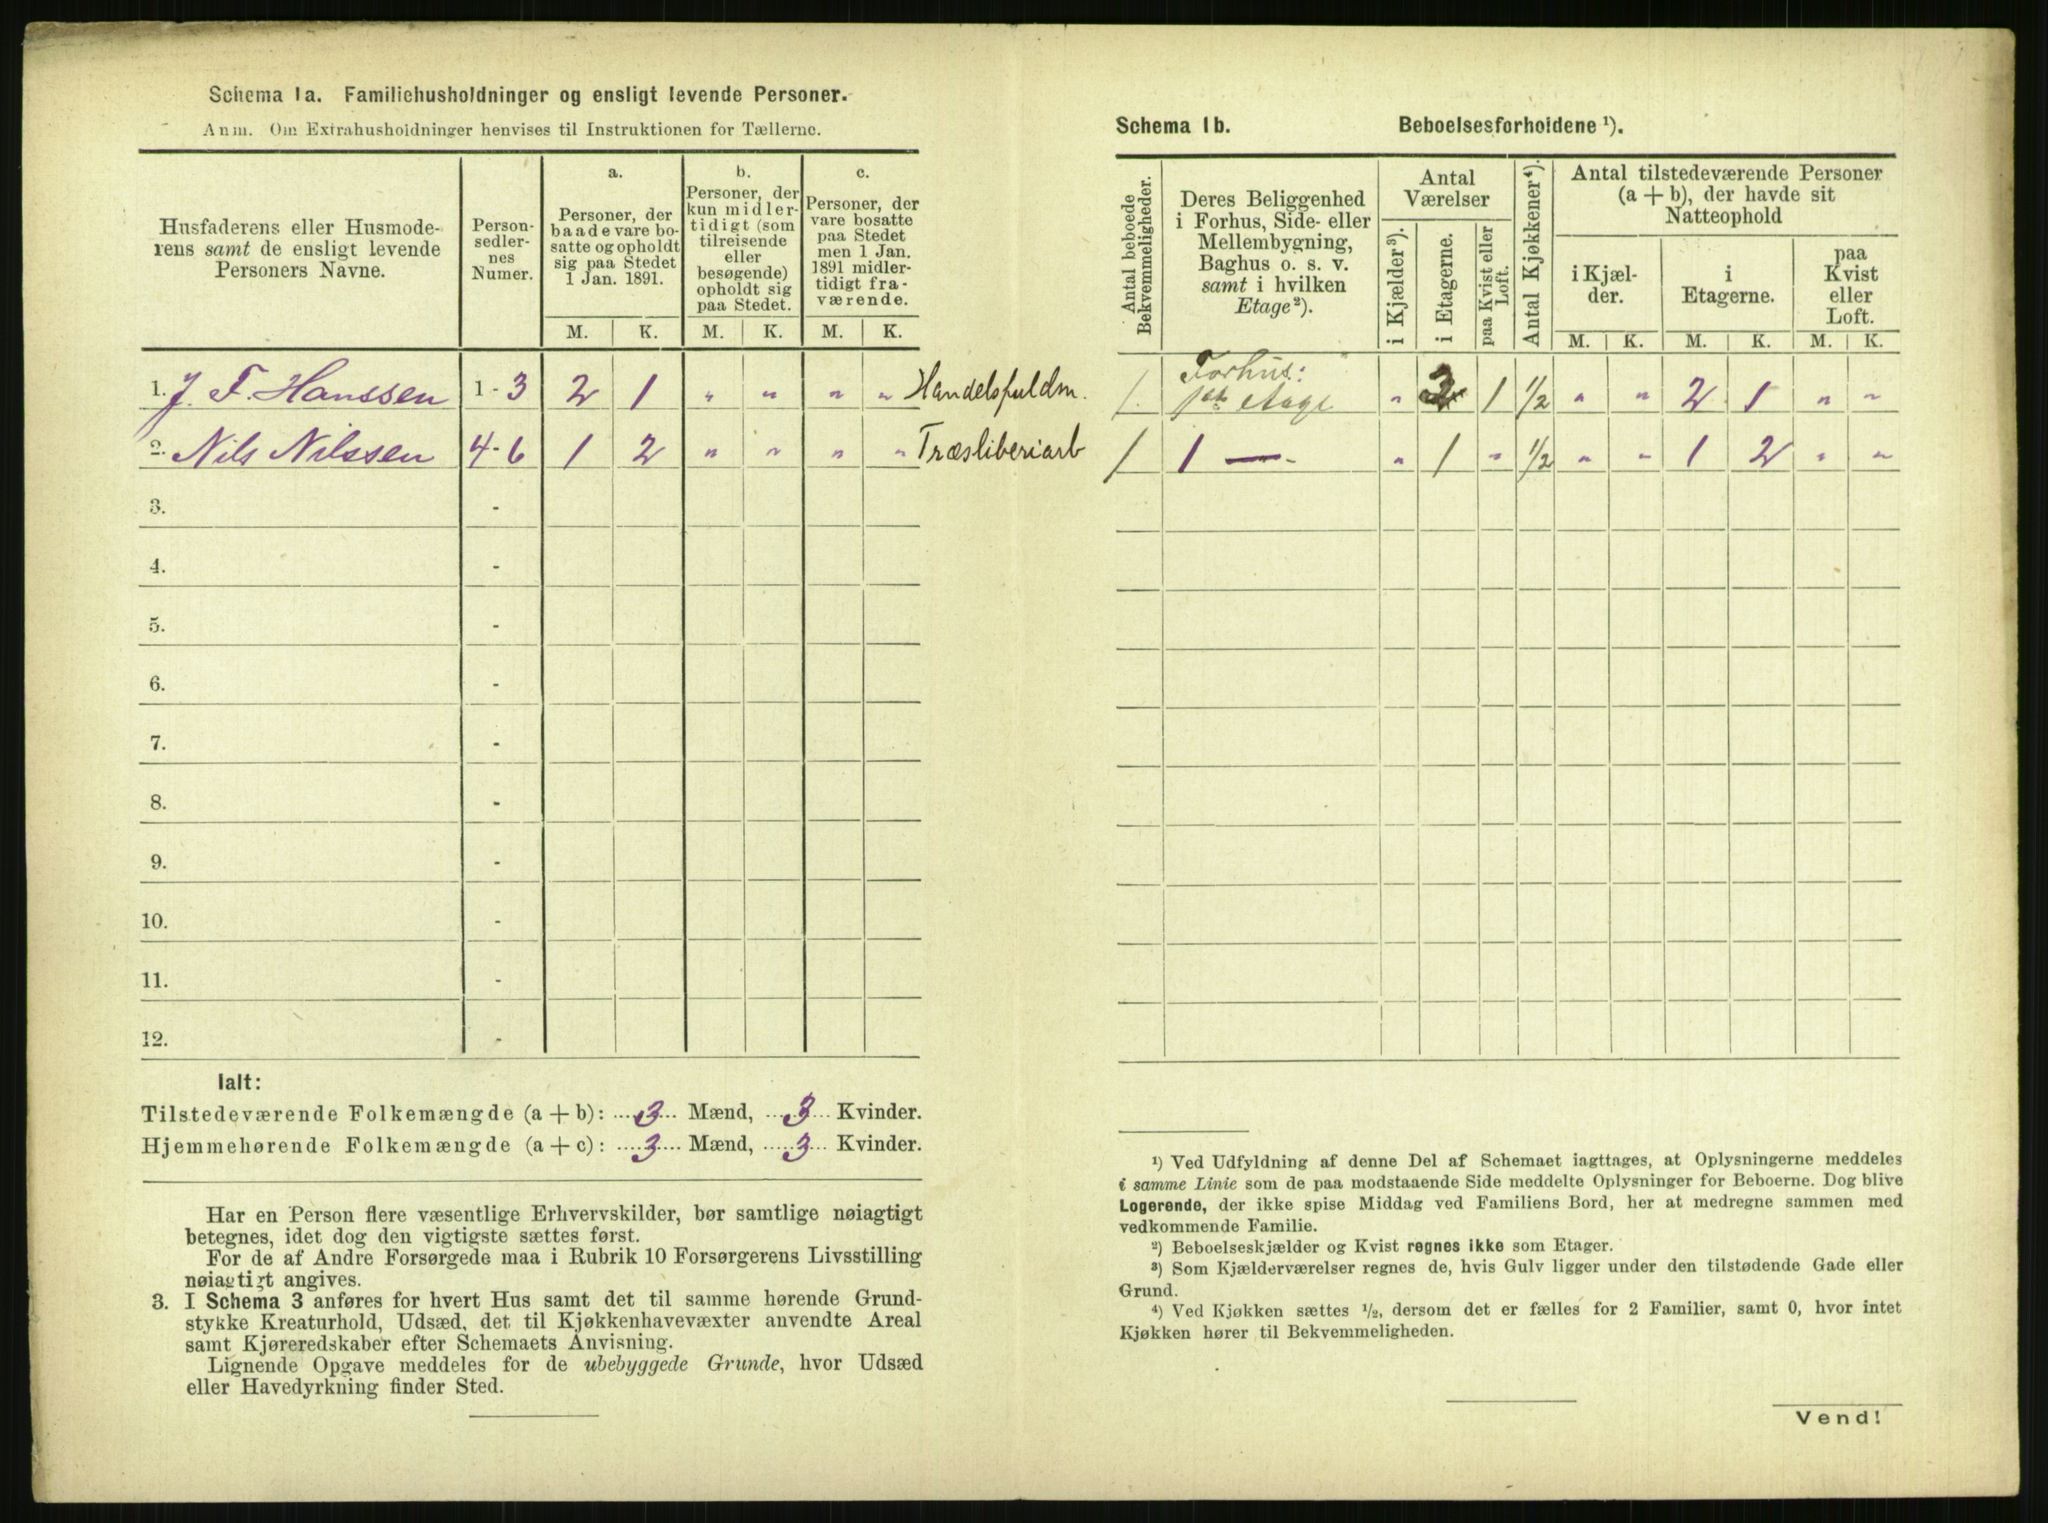 Schema 1a. Familiehusholdninger og ensligt levende Personer.
Anm. Om Extrahusholdninger henvises til Instruktionen for Tællerne.
Husfaderens eller Husmode-
rens samt de ensligt levende
Personers Navne.
Person-
sedler-
nes
Numer.
a.
Personer, der
baade vare bo-
satte og opholdt
sig paa Stedet
1 Jan. 1891.
b.
Personer, der
kun midler-
tidigt (som
tilreisende
eller
besøgende)
opholdt sig
paa Stedet.
c.
Personer, der
vare bosatte
paa Stedet
men 1 Jan.
1891 midler-
tidigt fra-
værende.
M. K. M. K. M. K.
1. J. F. Hanssen 1 - 3 2 1 " " " " Handelsfuldm.
2. Nils Nilssen 4 - 6 1 2 " " " " Træsliberiarb
3. -
4. -
5. -
6. -
7. -
8. -
9. -
10. -
11. -
12. -
Ialt:
Tilstedeværende Folkemængde (a + b): 3 Mænd, 3 Kvinder.
Hjemmehørende Folkemængde (a + c): 3 Mænd, 3 Kvinder.
Har en Person flere væsentlige Erhvervskilder, bør samtlige nøiagtigt
betegnes, idet dog den vigtigste sættes først.
For de af Andre Forsørgede maa i Rubrik 10 Forsørgerens Livsstilling
nøiagtigt angives.
3. I Schema 3 anføres for hvert Hus samt det til samme hørende Grund-
stykke Kreaturhold, Udsæd, det til Kjøkkenhavevæxter anvendte Areal
samt Kjøreredskaber efter Schemaets Anvisning.
Lignende Opgave meddeles for de ubebyggede Grunde, hvor Udsæd
eller Havedyrkning finder Sted.
Schema 1b. Beboelsesforholdene ¹).
Antal beboede
Bekvemmeligheder.
Deres Beliggenhed
i Forhus, Side- eller
Mellembygning,
Baghus o. s. v.
samt i hvilken
Etage²).
Antal
Værelser
i Kjælder³).
i Etagerne.
paa Kvist eller
Loft.
Antal Kjøkkener⁴).
Antal tilstedeværende Personer
(a + b), der havde sit
Natteophold
i Kjæl-
der.
i
Etagerne.
paa
Kvist
eller
Loft.
M. K. M. K. M. K.
Forhus:
1 1ste etage " 1 1/2 " " 2 1 " "
1 1 — " 1 " 1/2 " " 1 2 " "
¹) Ved Udfyldning af denne Del af Schemaet iagttages, at Oplysningerne meddeles
i samme Linie som de paa modstaaende Side meddelte Oplysninger for Beboerne. Dog blive
Logerende, der ikke spise Middag ved Familiens Bord, her at medregne sammen med
vedkommende Familie.
²) Beboelseskjælder og Kvist regnes ikke som Etager.
³) Som Kjælderværelser regnes de, hvis Gulv ligger under den tilstødende Gade eller
Grund.
⁴) Ved Kjøkken sættes ½, dersom det er fælles for 2 Familier, samt 0, hvor intet
Kjøkken hører til Bekvemmeligheden.
Vend!